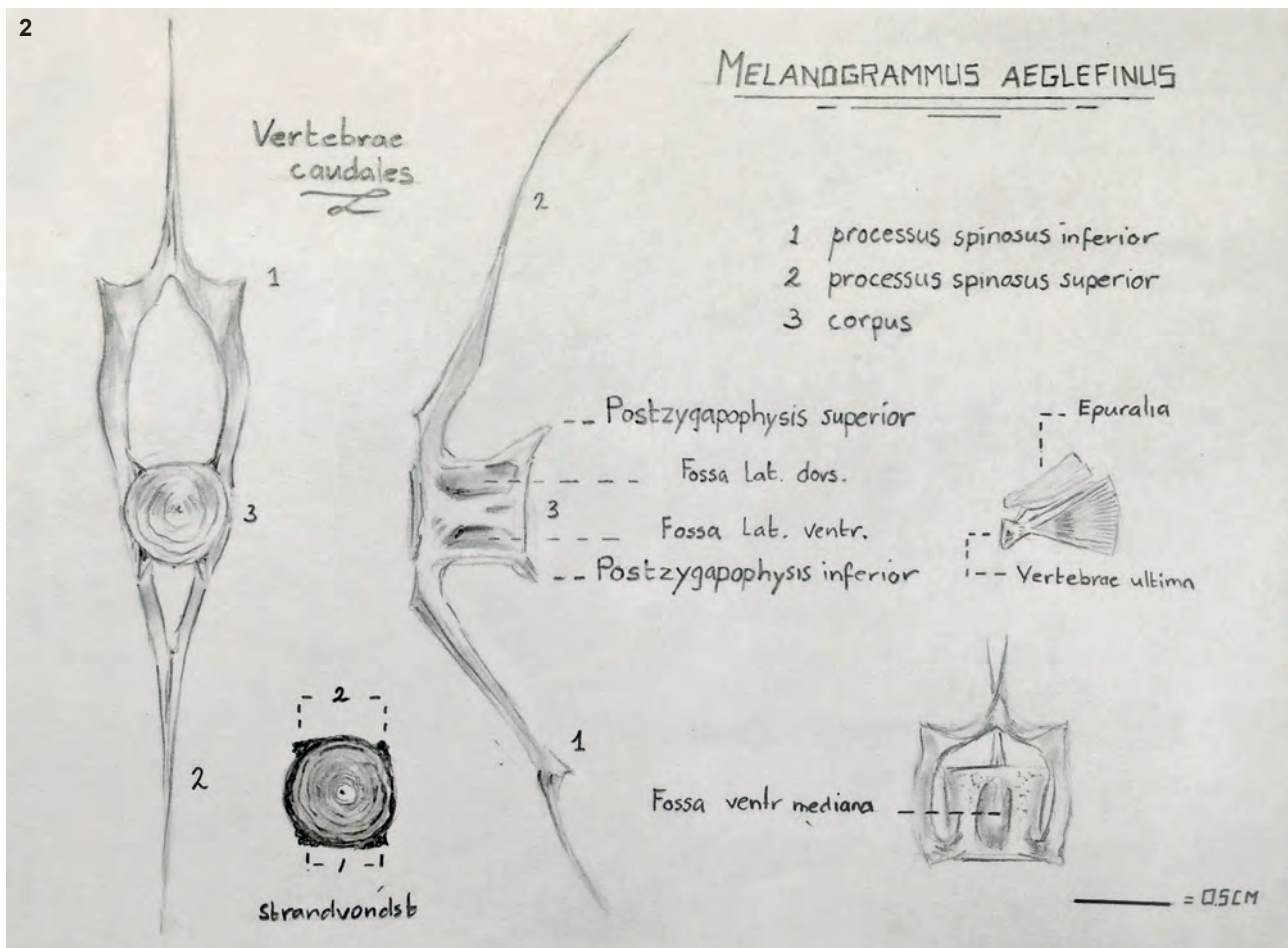 2
MELANOGRAMMUS AEGLEFINUS
Vertebrae
caudales
1 processus spinosus inferior
2 processus spinosus superior
3 corpus
1
3
2
2
3
1
-- Postzygapophysis superior
Fossa Lat. dors.
Fossa Lat. ventr.
-- Postzygapophysis inferior
Epuralia
Vertebrae ultima
2
1
strandvondst
Fossa ventr mediana
= 0.5CM